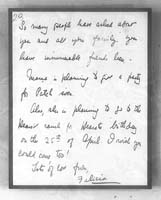 So many people have asked about
you and all your family. You
have innumerable friends here.
Mama is planning to give a party
for Patch soon
Also, she is planning to go to the
Hearst ranch for Hearsts birthday
on the 25th of April. I wish you
could come too!
Lots of love from,
Felicia